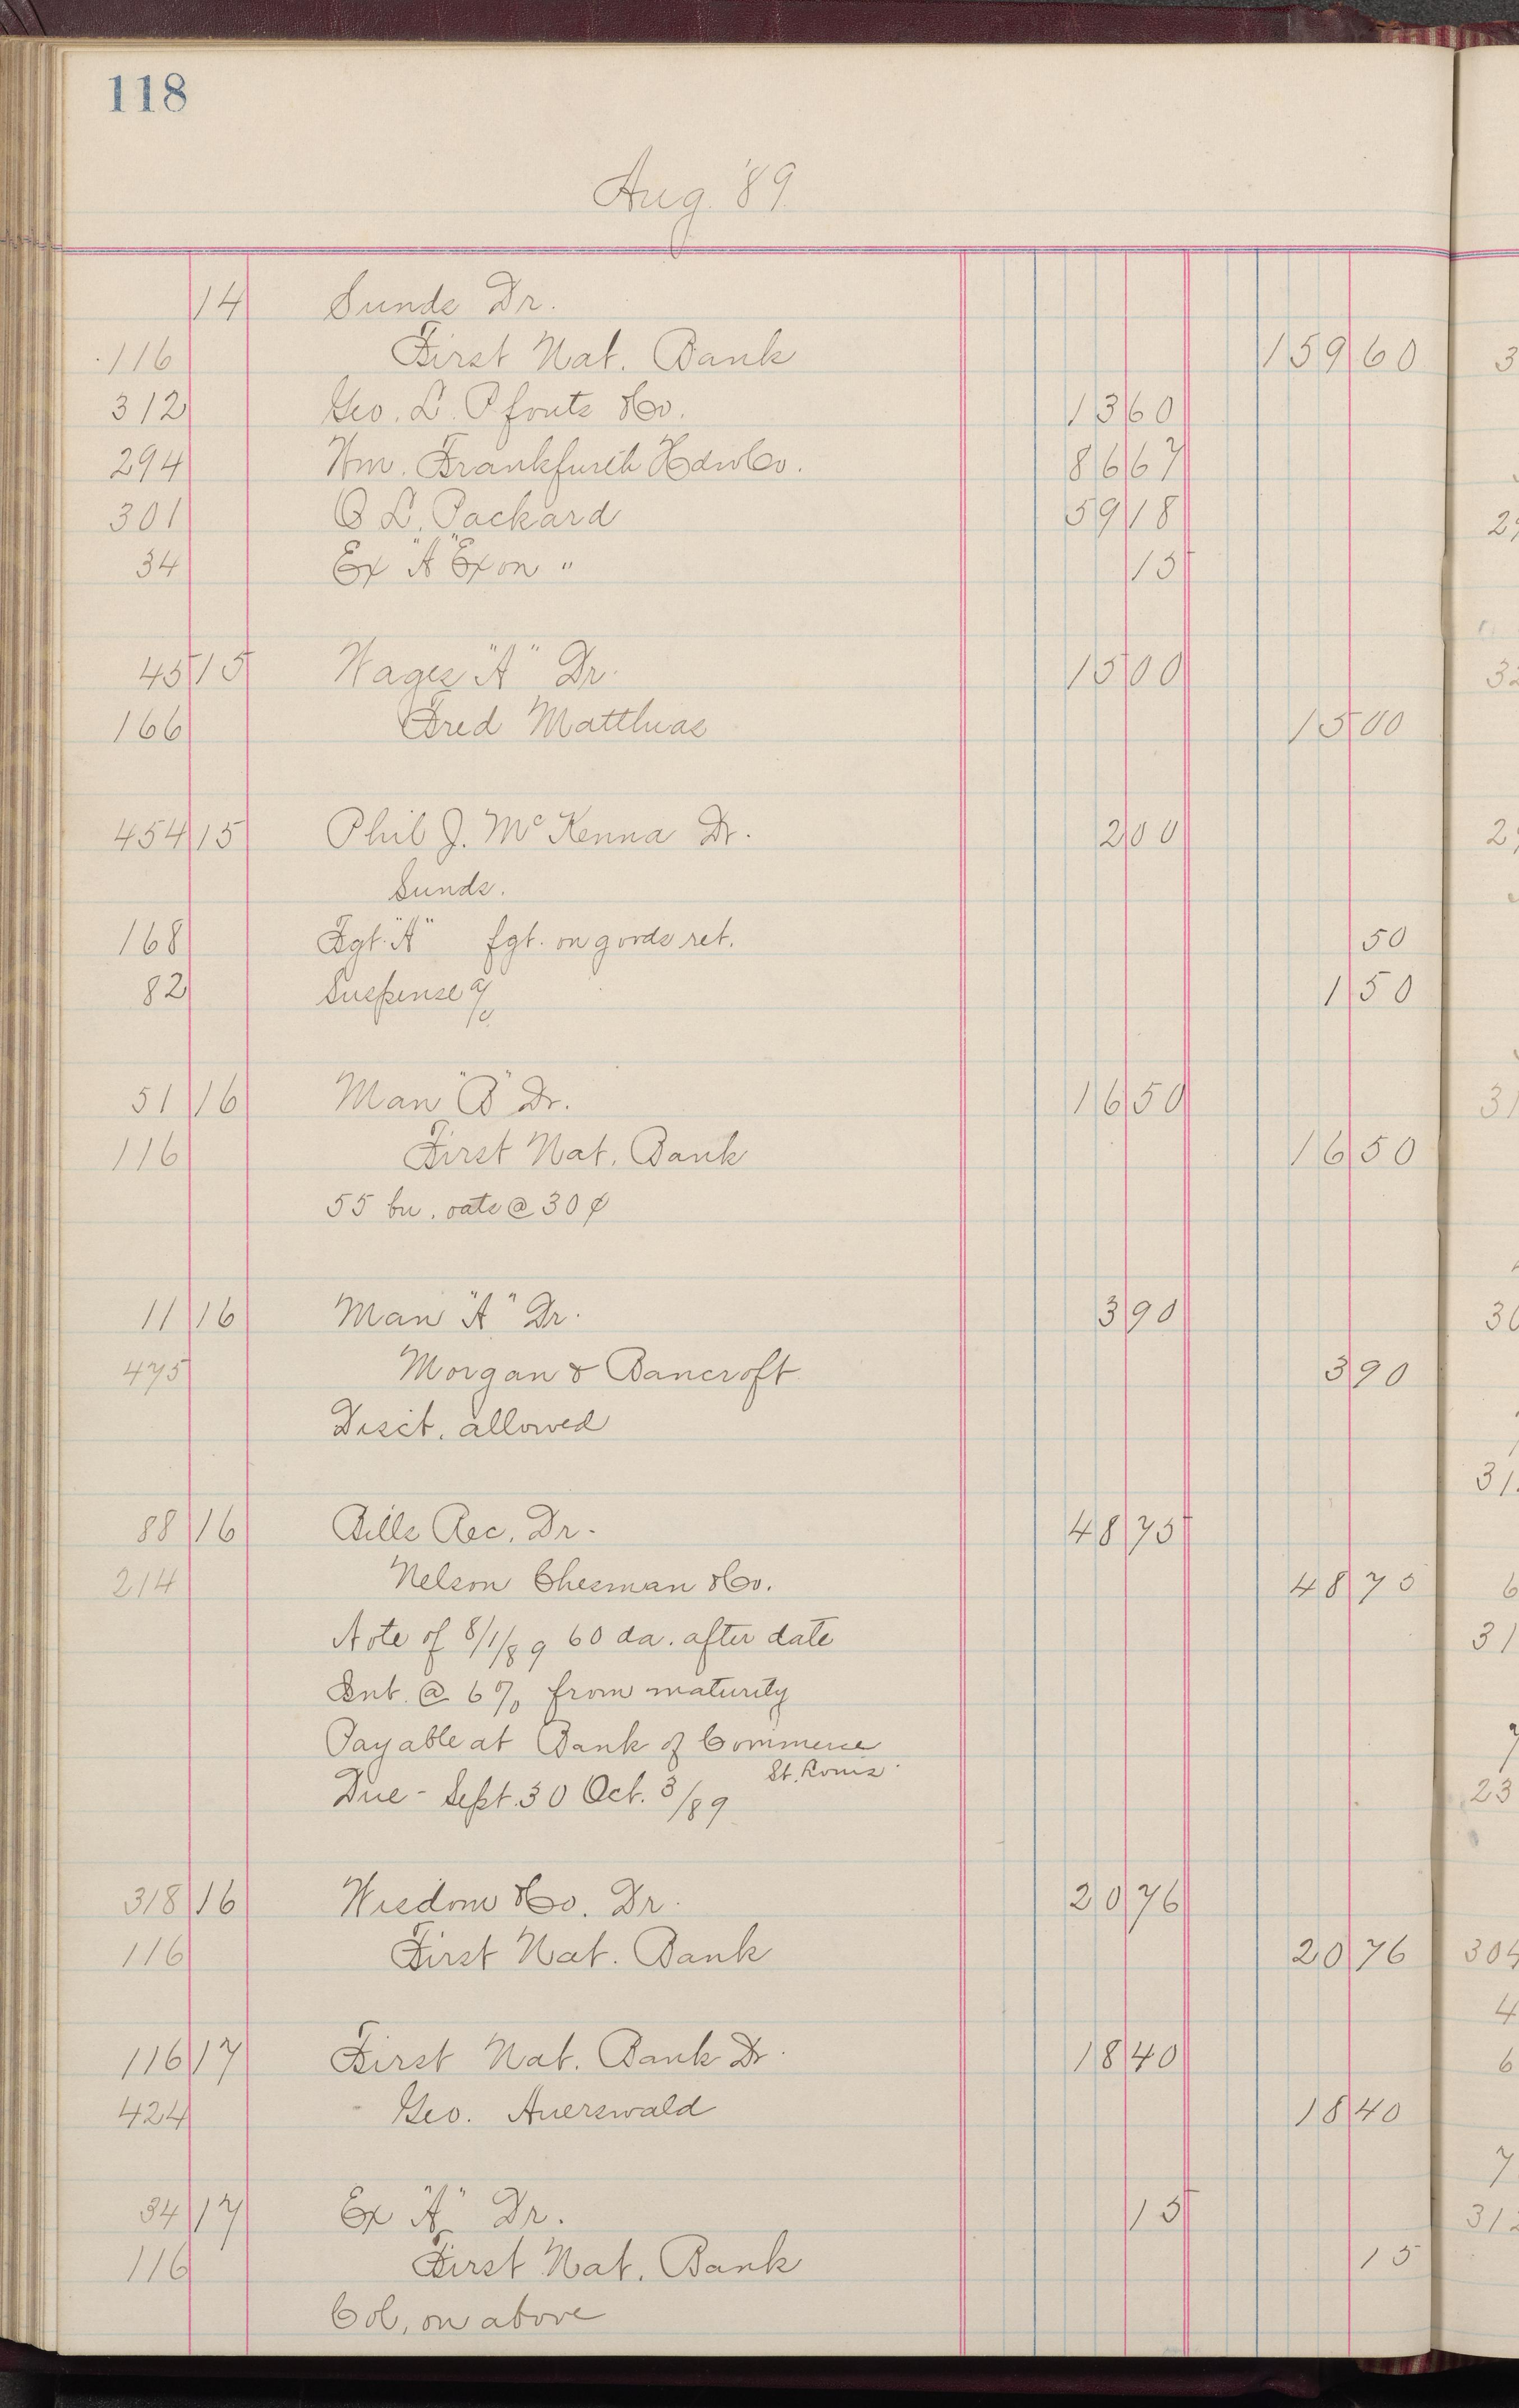 118
Aug. '89.
14 Sunds Dr.
116 First Nat. Bank 159 60
312 Geo. L. Pfouts & Co. 13 60
294 Wm. Frankfurth Hdw Co. 86 67
301 O L. Packard 59 18
34 Ex "A" Ex on " 15
45 15 Wages "A" Dr. 15 00
166 Fred Matthias 15 00
454 15 Phil J. McKenna Dr. 2 00
Sunds.
168 Fgt. "A" fgt. on goods ret. 50
82 Suspense a/c 1 50
51 16 Man "B" Dr. 16 50
116 First Nat. Bank 16 50
55 bu. oats @ 30 ¢
11 16 Man "A" Dr. 3 90
475 Morgan & Bancroft 3 90
Disct. allowed
88 16 Bills Rec. Dr. 48 75
214 Nelson Chesman & Co. 48 75
Note of 8/1/89 60 da. after date
Int. @ 6% from maturity
Payable at Bank of Commerce
St. Louis.
Due - Sept. 30 Oct. 3/89
318 16 Wisdom & Co. Dr. 20 76
116 First Nat. Bank 20 76
116 17 First Nat. Bank Dr. 18 40
424 Geo. Auerswald 18 40
34 17 Ex "A" Dr. 15
116 First Nat. Bank 15
Col, on above